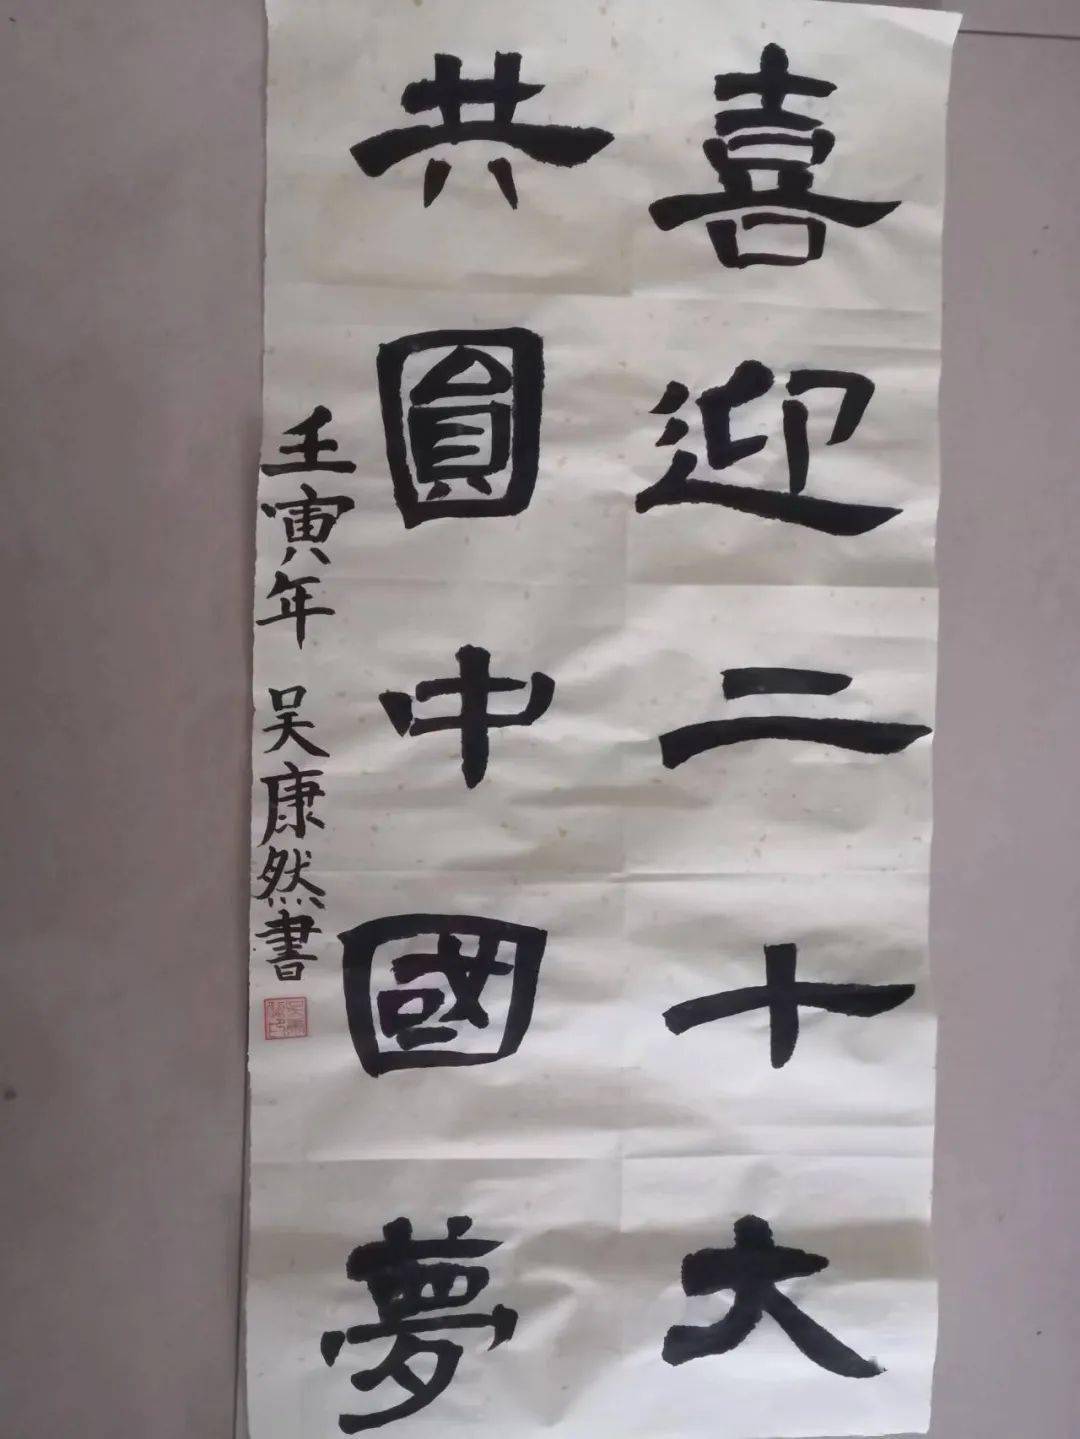 喜迎二十大
共圓中國夢
壬寅年 吴康然書